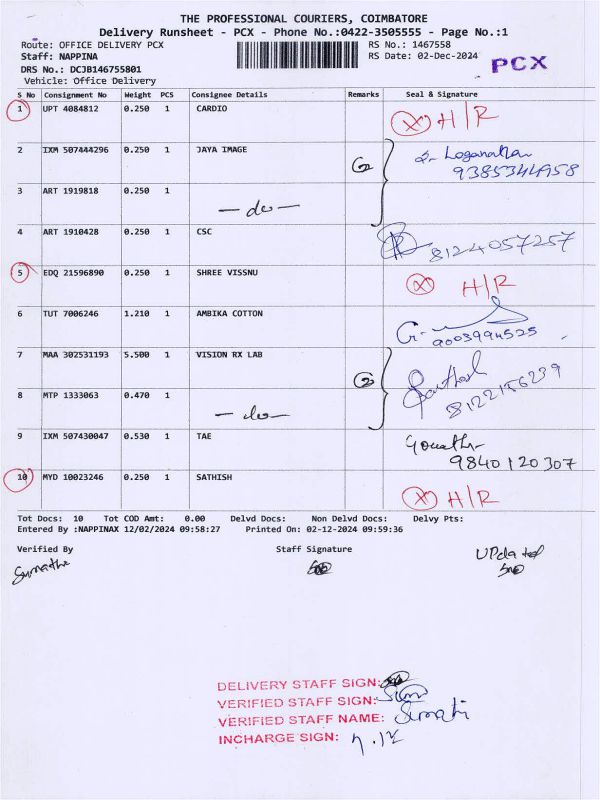 THE PROFESSIONAL COURIERS, COIMBATORE
Delivery Runsheet - PCX - Phone No.:0422-3505555 - Page No.:1
Route: OFFICE DELIVERY PCX
RS No.: 1467558
Staff: NAPPINA
RS Date: 02-Dec-2024
PCX
DRS No.: DCJB146755801
Vehicle: Office Delivery
S No Consignment No Weight PCS Consignee Details Remarks Seal & Signature
1 UPT 4084812 0.250 1 CARDIO
X H/R
2 IXM 507444296 0.250 1 JAYA IMAGE
2 Loganatha
9385344958
3 ART 1919818 0.250 1
- do -
4 ART 1910428 0.250 1 CSC
8124057257
5 EDQ 21596890 0.250 1 SHREE VISSNU
X H/R
6 TUT 7006246 1.210 1 AMBIKA COTTON
9003994525
7 MAA 302531193 5.500 1 VISION RX LAB
2
8122156239
8 MTP 1333063 0.470 1
- do -
9 IXM 507430047 0.530 1 TAE
9840120307
10 MYD 10023246 0.250 1 SATHISH
X H/R
Tot Docs: 10 Tot COD Amt: 0.00 Delvd Docs: Non Delvd Docs: Delvy Pts:
Entered By :NAPPINAX 12/02/2024 09:58:27 Printed On: 02-12-2024 09:59:36
Verified By Staff Signature
Updated
Sumathi
DELIVERY STAFF SIGN:
VERIFIED STAFF SIGN:
VERIFIED STAFF NAME: Sumathi
INCHARGE SIGN: